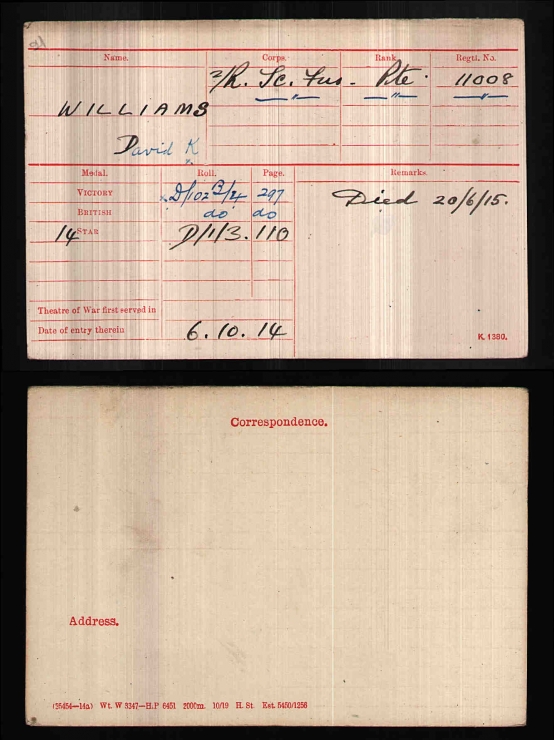 Name. Corps. Rank. Regtl. No.
2/R. Sc. Fus. Pte. 11008
WILLIAMS " " "
David K
Medal. Roll. Page. Remarks.
VICTORY D/102 B/24 297 Died 20/6/15.
BRITISH do do
14 STAR D/1/3. 110
Theatre of War first served in
Date of entry therein 6.10.14
K. 1380.
Correspondence.
Address.
(35454—14a) Wt. W 3347—H.P 6451 2000m. 10/19 H. St. Est. 5450/1256